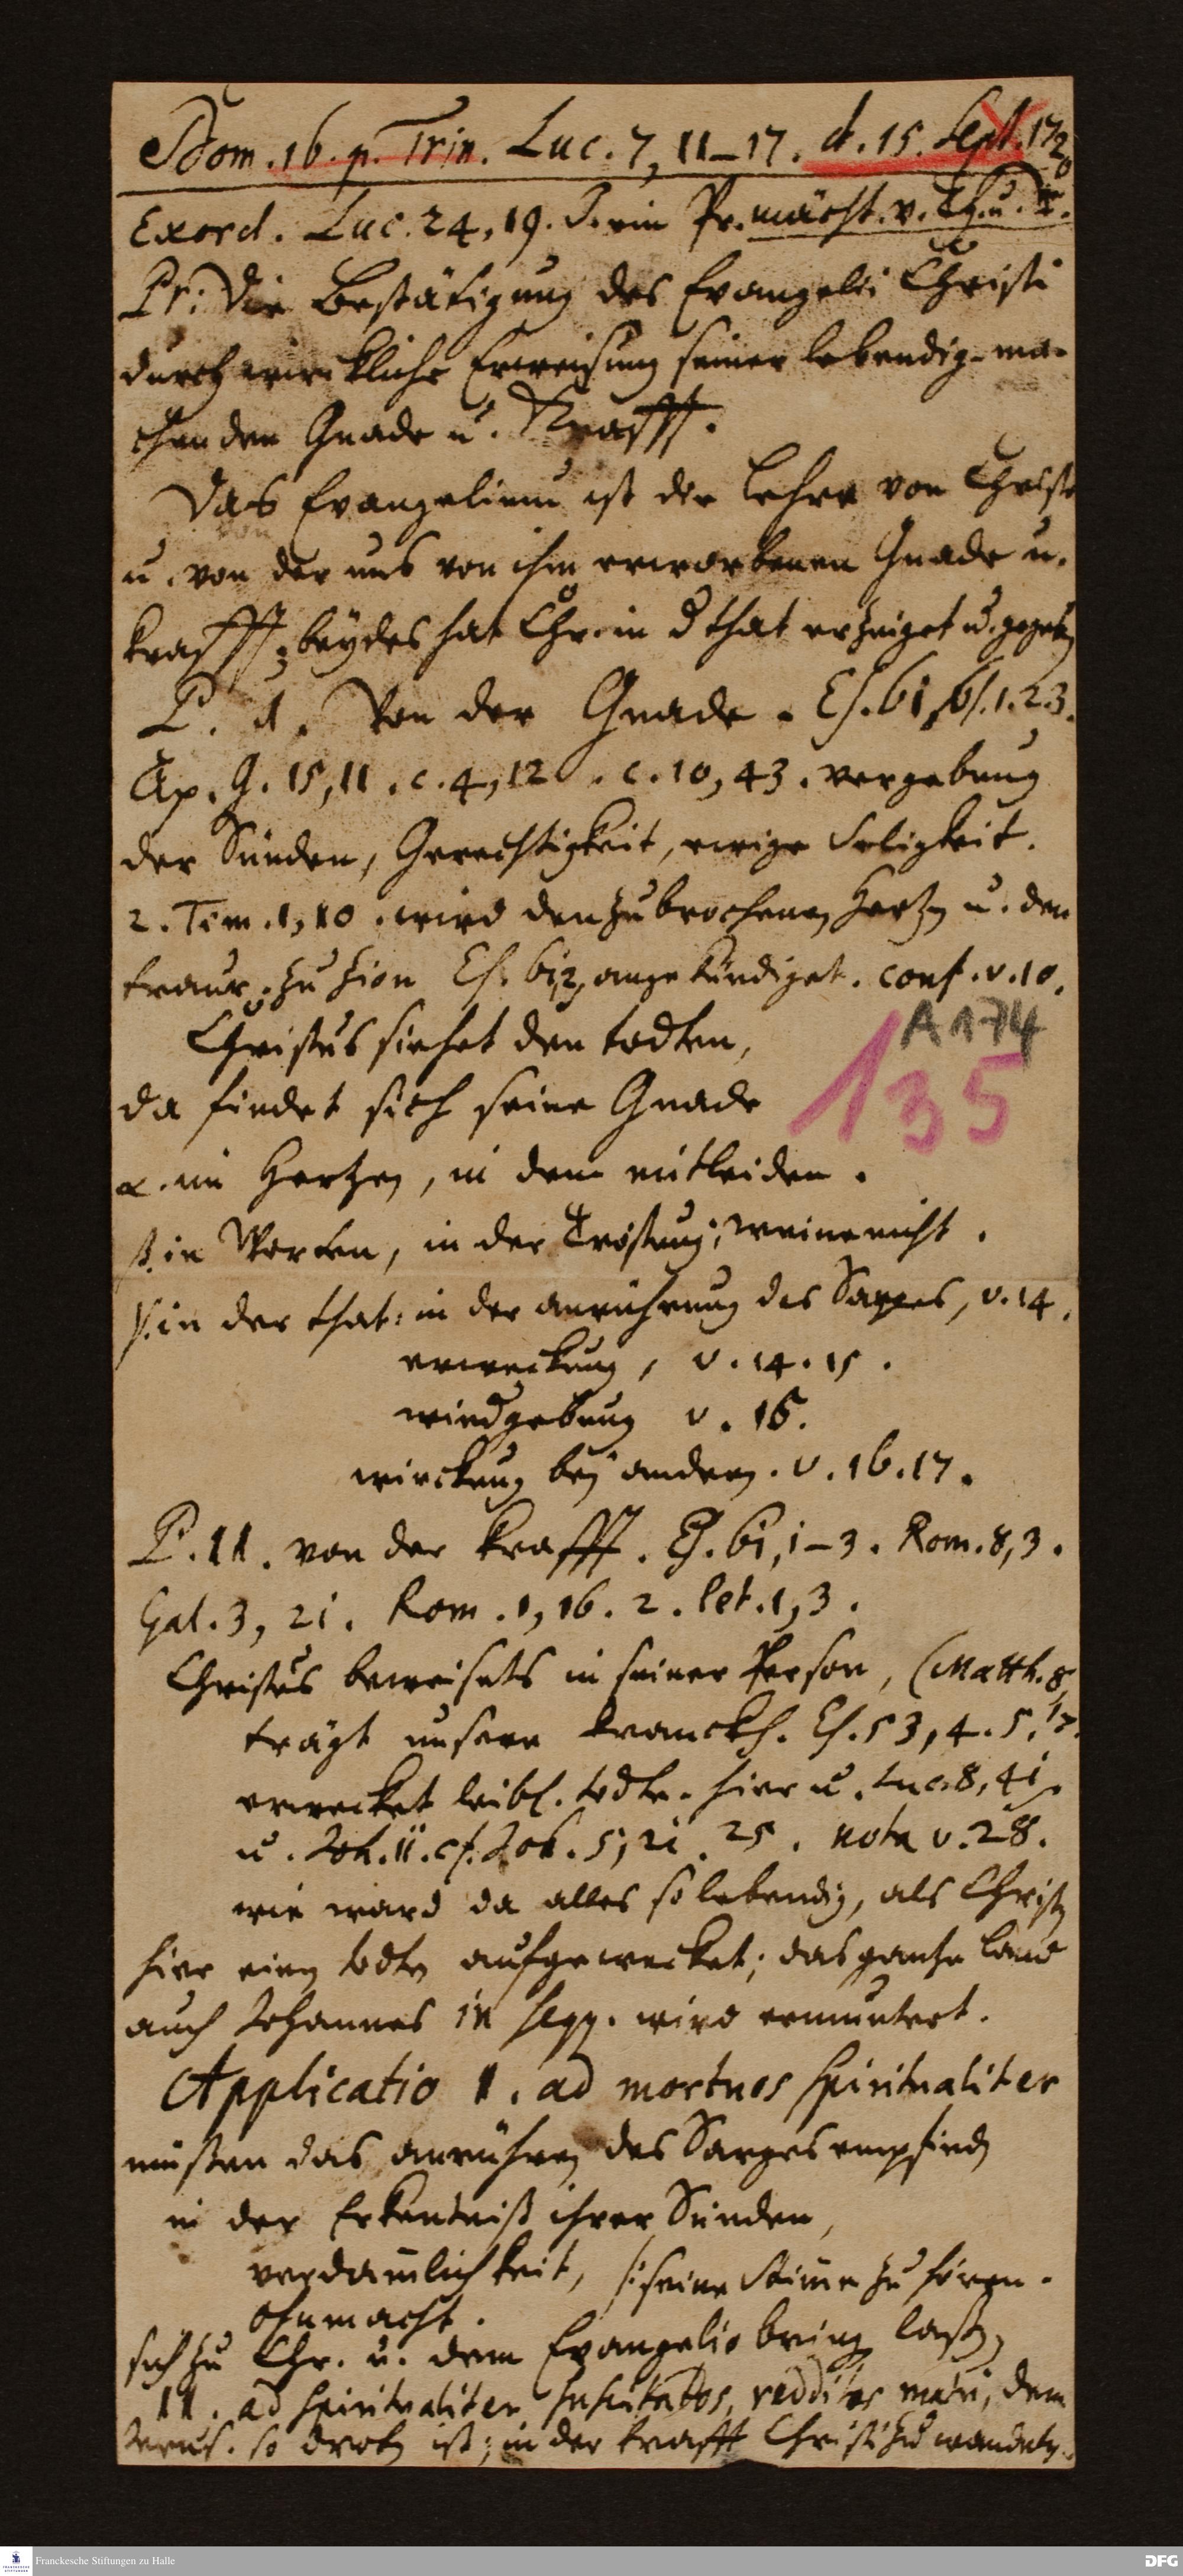 Dom. 16. p. Trin. Luc. 7, 11–17. d. 15. Sept. 1720
Exord. Luc. 24, 19. d. ein Pr. mächt. v. Th. u. W.
Pr: Die Bestätigung des Evangelii Christi
durch wirckliche Erweisung seiner lebendig-ma-
chenden Gnade u. Krafft.
Das Evangelium ist die Lehre von Christo
u. von der uns von ihm erworbenen Gnade u.
Krafft; beydes hat Chr. in d that erzeiget u. gegeben
P. 1. Von der Gnade. Es. 61, 1.2.3.
Ap. G. 15, 11. c. 4, 12. c. 10, 43. vergebung
der Sünden, Gerechtigkeit, ewige Seligkeit.
2. Tim. 1, 10. wird den zubrochenen Hertzen u. den
traur. zu Zion Es. 61,2, angekündiget. conf. v. 10.
A 174
Christus siehet den todten,
135
da findet sich seine Gnade
α. im Hertzen, in dem mitleiden.
β. in Worten, in der Tröstung; weine nicht.
γ. in der that: in der anrührung des Sarges, v. 14.
erweckung, v. 14. 15.
wiedgebung v. 15.
wirckung bey andern. v. 16. 17.
P. 11. von der Krafft. Es. 61, 1–3. Rom. 8, 3.
Gal. 3, 21. Rom. 1, 16. 2. Pet. 1, 3.
Christus beweisets in seiner Person, (Matth. 8, 17.
trägt unsere kranckh. Es. 53, 4. 5.
erwecket leibl. todte. hier u. Luc. 8, 41.
u. Joh. 11. cf. Joh. 5, 21. 25. nota v. 28.
wie ward da alles so lebendig, als Christus
hier einen todten aufgewecket; das gantze Land
auch Johannes in seqq. wird ermuntert.
Applicatio 1. ad mortuos spiritualiter
müssen das anrühren des Sarges empfinden
in der Erkentniß ihrer Sünden,
verdam̄lichkeit, /: seine Stim̄e zu hören.
Ohnmacht.
sich zu Chr. u. dem Evangelio bringen lassen,
11. ad spiritualiter suscitatos, redditos matri, dem
Jerus. so droben ist; in der Krafft Christi zu wandeln.
Franckesche Stiftungen zu Halle
DFG